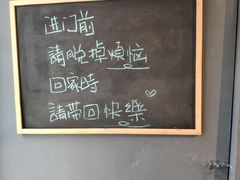 进门前
請脱掉煩惱
回家時
請带回快樂